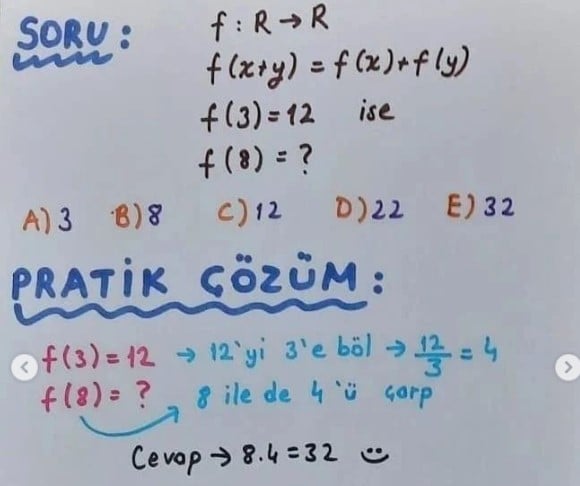 SORU:
f: R → R
f(x+y) = f(x)+f(y)
f(3)=12 ise
f(8) = ?
A) 3 B) 8 C) 12 D) 22 E) 32
PRATİK ÇÖZÜM:
f(3)=12 → 12'yi 3'e böl → 12/3 = 4
f(8)= ? 8 ile de 4'ü çarp
Cevap → 8.4=32